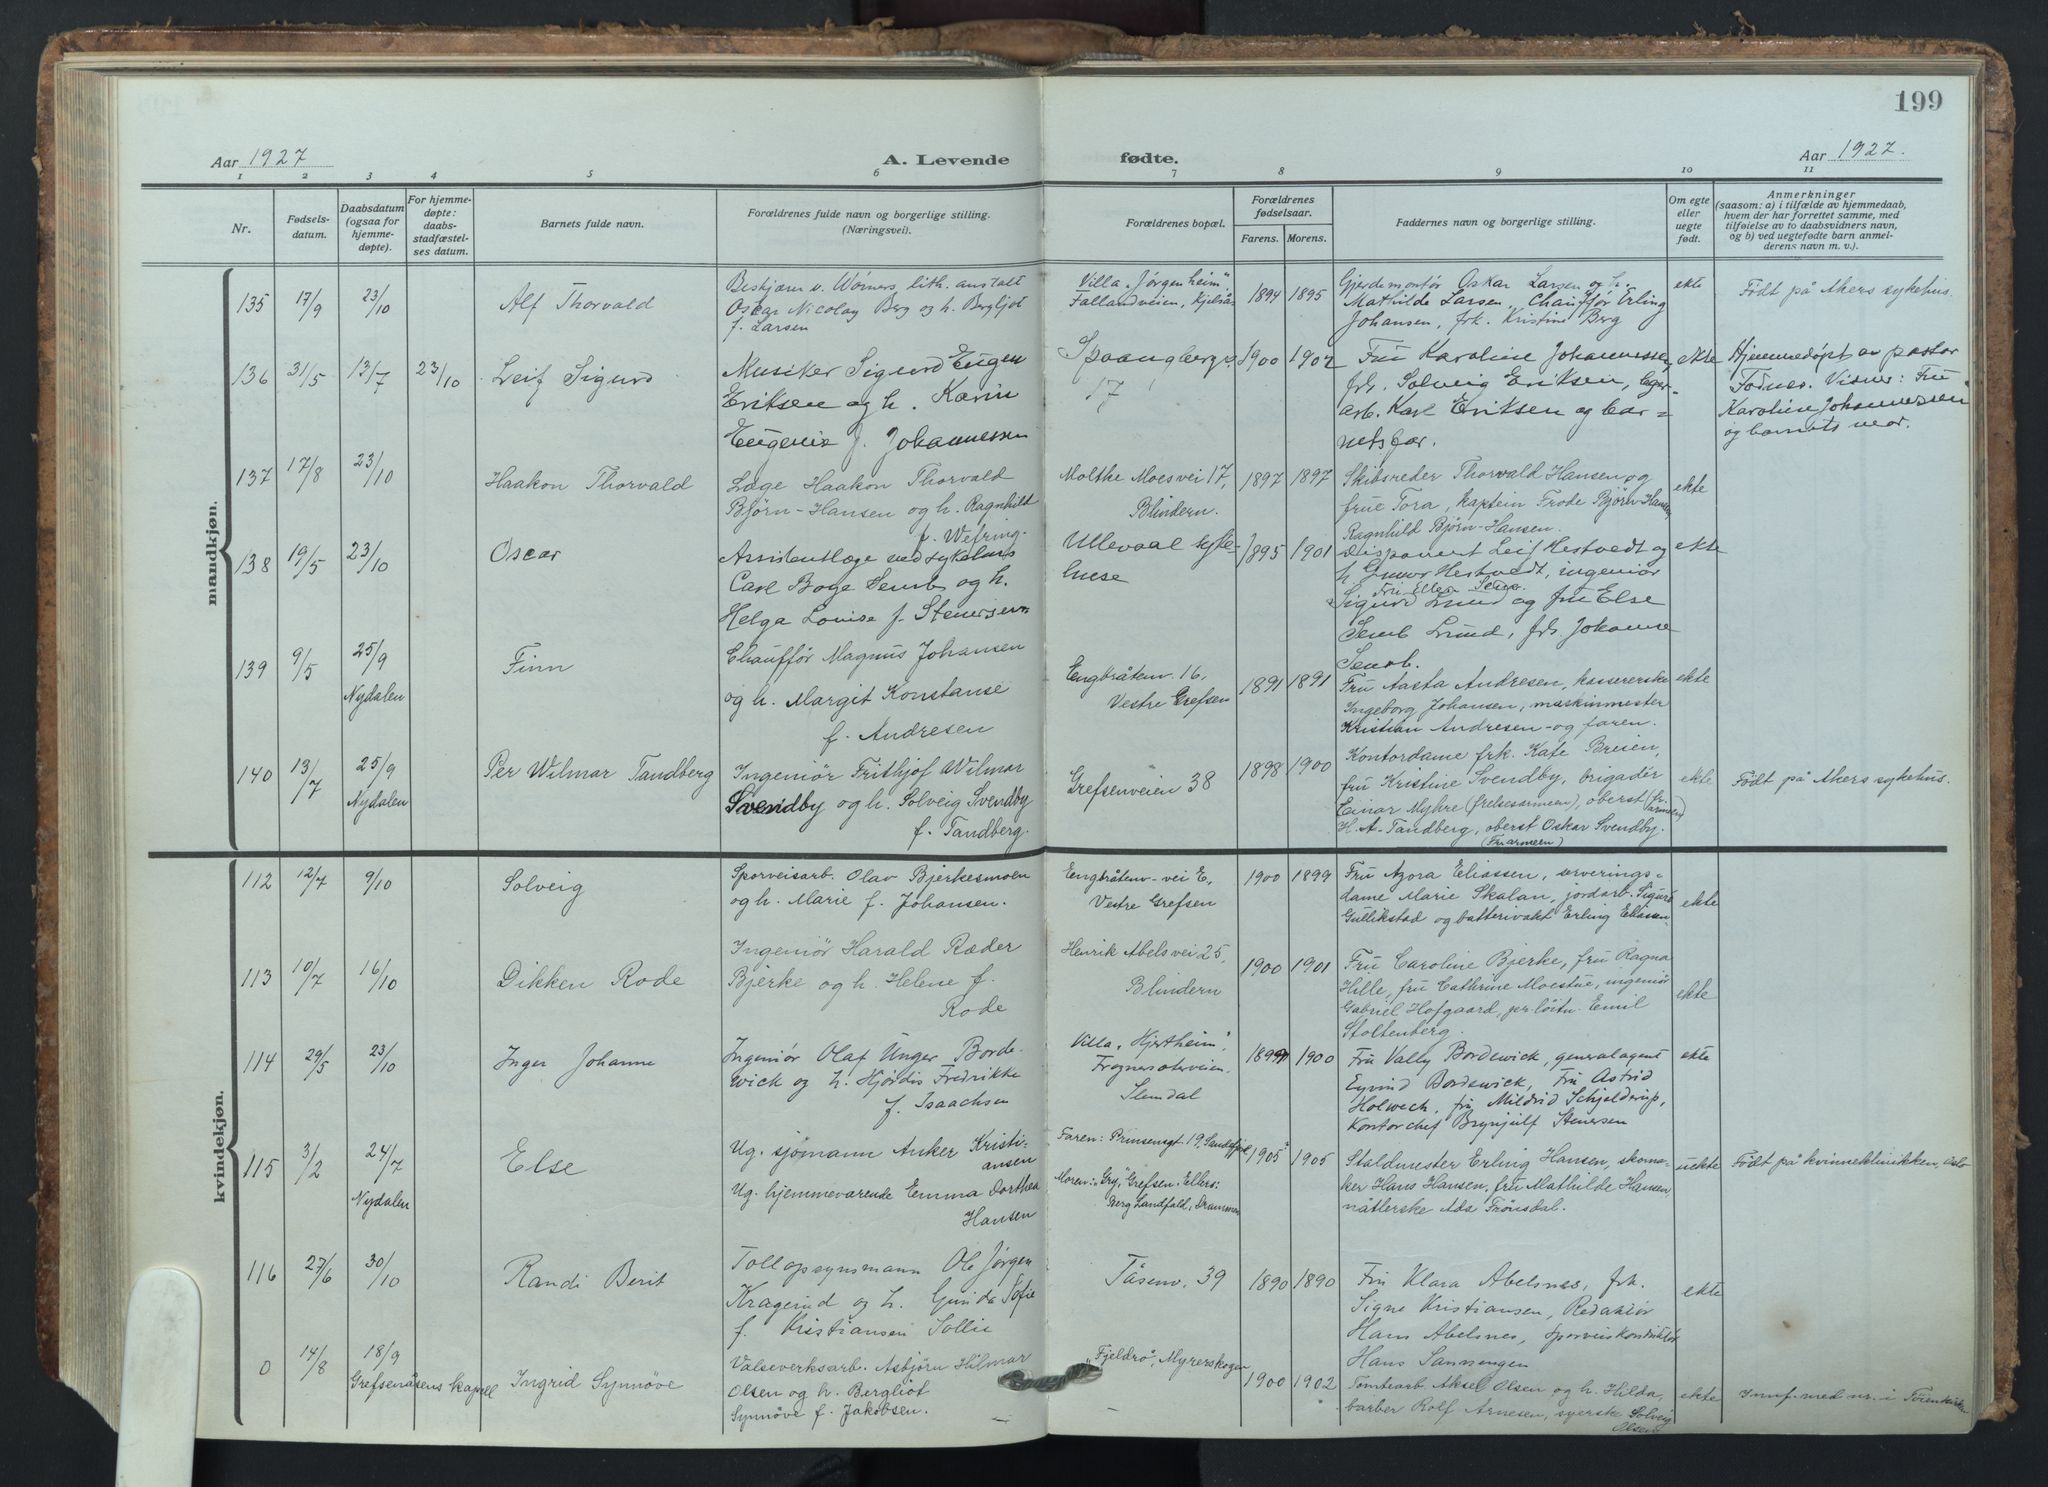 199
Aar 1927
A. Levende
fødte.
Aar 1927.
1 2 3 4 5 6 7 8 9 10 11
Nr.
Fødsels-
datum.
Daabsdatum
(ogsaa for
hjemme-
døpte).
For hjemme-
døpte:
daabs-
stadfæstel-
ses datum.
Barnets fulde navn.
Forældrenes fulde navn og borgerlige stilling.
(Næringsvei).
Forældrenes bopæl.
Forældrenes
fødselsaar.
Farens. Morens.
Faddernes navn og borgerlige stilling.
Om egte
eller
uegte
født.
Anmerkninger
(saasom: a) i tilfælde av hjemmedaab,
hvem der har forrettet samme, med
tilføielse av to daabsvidners navn,
og b) ved uegtefødte barn anmel-
derens navn m. v.).
mandkjøn.
135 17/9 23/10
Alf Thorvald
Beskjærer v. Wörners lith. anstalt
Oscar Nicolay Berg og h. Bergljot
f. Larsen
Villa "Jørgenheim",
Fallandveien, Kjelsås
1894 1895
Gjerdemontør Oskar Larsen og h.
Mathilde Larsen, Chauffør Erling
Johansen, frk. Kristine Berg
ekte
Født på Akers sykehus.
136 31/5 13/7 23/10
Leif Sigurd
Musiker Sigurd Eugen
Eriksen og h. Karin
Eugenie f. Johannessen
Spaangbergv.
17
1900 1902
Fru Karoline Johannessen,
frk. Solveig Eriksen, lager-
arb. Karl Eriksen og bar-
netsfar.
ekte
Hjemmedøpt av pastor
Fodnes. Vidner: Fru
Karoline Johannessen
og barnets mor.
137 17/8 23/10
Haakon Thorvald
Læge Haakon Thorvald
Björn-Hansen og h. Ragnhild
f. Wefring.
Molthe Moesvei 17,
Blindern.
1897 1897
Skibsreder Thorvald Hansen og
frue Tora, kaptein Frode Björn-Hansen,
Ragnhild Björn-Hansen.
ekte
138 19/5 23/10
Oscar
Assistentlæge ved sykehus
Carl Boye Semb og h.
Helga Louise f. Stenersen
Ullevaal syke-
huse
1895 1901
Disponent Leif Hestvedt og
h. Hestvedt, ingeniør
Fru Ellen Semb.
Sigurd Lund og fru Else
Semb Lund, frk. Johanne
Semb.
ekte
139 9/5 25/9
Nydalen
Finn
Chauffør Magnus Johansen
og h. Margit Konstanse
f. Andresen
Engbråtenv. 16,
Vestre Grefsen
1891 1891
Fru Aasta Andresen, kassererske
Ingeborg Johansen, maskinmester
Kristian Andresen og faren.
ekte
140 13/7 25/9
Nydalen
Per Wilmar Tandberg
Ingeniör Frithjof Wilmar
Svendby og h. Solveig Svendby
f. Tandberg.
Grefsenveien 38
1898 1900
Kontordame frk. Kate Breien,
fru Kristine Svendby, brigadér
Einar Myhre (frelsesarmeen), oberst (fr. armeen)
H. A. Tandberg, oberst Oskar Svendby.
(Fr. armeen)
ekte
Født på Akers sykehus.
kvindekjøn.
112 12/7 9/10
Solveig
Sporveisarb. Olav Bjerkesmoen
og h. Marie f. Johansen.
Engbråtenv-vei E,
Vestre Grefsen
1900 1899
Fru Agora Eliassen, serverings-
dame Marie Skalan, jordarb. Sigurd
Gullikstad og batterivakt Erling Eliassen
ekte
113 10/7 16/10
Dikken Rode
Ingeniör Harald Ræder
Bjerke og h. Helene f.
Rode
Henrik Abelsvei 25,
Blindern
1900 1901
Fru Caroline Bjerke, fru Ragna
Hille, fru Cathrine Moestue, ingeniør
Gabriel Hofgaard, pr.löitn. Emil
Stoltenberg.
ekte
114 29/5 23/10
Inger Johanne
Ingeniör Olaf Unger Borde-
wick og h. Hjördis Fredrikke
f. Isaachsen
Villa "Hjertheim",
Frognersæterveien.
Slemdal
1899 1900
Fru Vally Bordewick, generalagent
Eyvind Bordewick, Fru Astrid
Holweck, fru Mildrid Schjelderup,
Kontorchef Brynjulf Stenersen
ekte
115 3/2 24/7
Nydalen
Else
Ug. sjømann Anker Kristi-
ansen
Ug. hjemmeværende Emma Dorthea
Hansen
Faren: Prinsensgt. 19, Sandefjord
Moren: "Gry", Grefsen. Ellers:
Berg Landfald, Drammen
1905 1905
Staldmester Erling Hansen, skoma-
ker Hans Hansen, fru Mathilde Hansen,
nåtlerske Ada Frönsdal.
uekte
Født på kvinneklinikken, Oslo
116 27/6 30/10
Randi Berit
Tollopsynsmann Ole Jørgen
Kragerud og h. Gunda Sofie
f. Kristiansen Sollie
Tåsenv. 39
1890 1890
Fru Klara Abelsnes, frk.
Signe Kristiansen, Redaktör
Hans Abelsnes, Sporveiskonduktør
Hans Sannengen
ekte
0 14/8 18/9
Grefsenåsens kapell
Ingrid Synnöve
Valseverksarb. Asbjörn Hilmar
Olsen og h. Bergliot
Synnöve f. Jakobsen.
"Fjeldro", Myrerskogen
1900 1902
Tomtearb. Aksel Olsen og h. Hilda,
barber Rolf Arnesen, syerske Solveig
Olsen
ekte
Innf. med nr. i Töienkirken